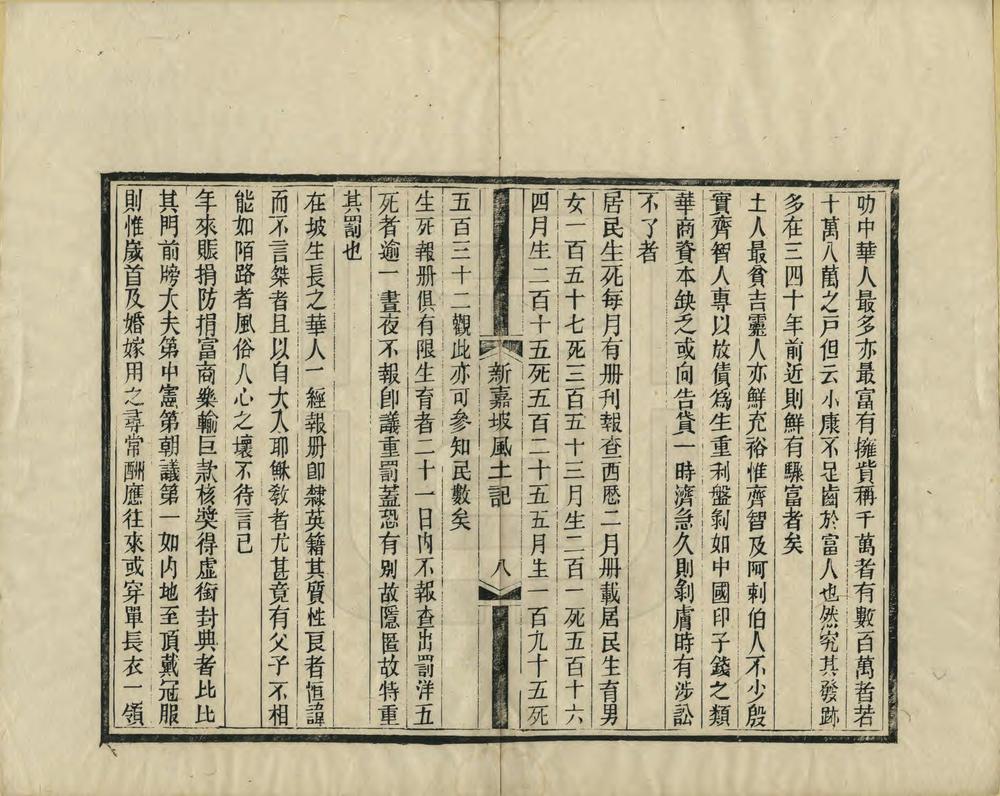 叻中華人最多亦最富有擁貲稱千萬者有數百萬者若
十萬八萬之戶但云小康不足齒於富人也然究其發跡
多在三四十年前近則鮮有驟富者矣
土人最貧吉靈人亦鮮充裕惟齊智及阿剌伯人不少殷
實齊智人專以放債爲生重利盤剝如中國印子錢之類
華商資本缺乏或向告貸一時濟急久則剝膚時有涉訟
不了者
居民生死每月有册刊報查西歷二月册載居民生育男
女一百五十七死三百五十三月生二百一死五百十六
四月生二百十五死五百二十五五月生一百九十五死
新嘉坡風土記 八
五百三十二觀此亦可參知民數矣
生死報册俱有限生育者二十一日內不報查出罰洋五
死者逾一晝夜不報卽議重罰蓋恐有別故隱匿故特重
其罰也
在坡生長之華人一經報册卽隸英籍其質性良者恒諱
而不言桀者且以自大入耶穌敎者尤甚竟有父子不相
能如陌路者風俗人心之壞不待言已
年來賑捐防捐富商樂輸巨款核獎得虛銜封典者比比
其門前牓大夫第中憲第朝議第一如內地至頂戴冠服
則惟歲首及婚嫁用之尋常酬應往來或穿單長衣一領